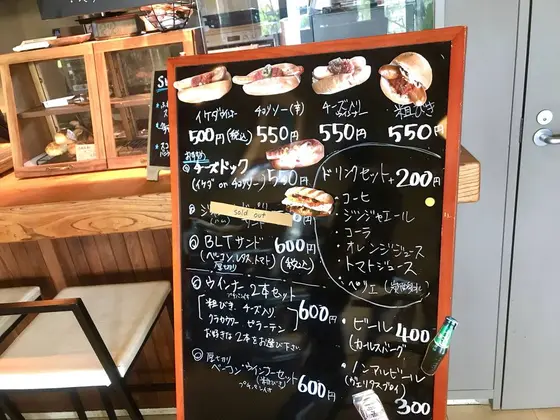 イケダウインナー
チョリソー(辛)
チーズ入りウインナー
粗びき
500円(税込)
550円
550円
550円
おすすめ
チーズドック 550円
(イケダ or チョリソー)
sold out
BLTサンド 600円
(ベーコン、レタス、トマト) (税込)
厚切り
ウインナー2本セット
粗びき、チーズ入り 600円
クラカウワー ゼラーテン
お好きな2本をお選び下さい
厚切り
ベーコン・ウインナーセット
(粗びき) 600円
ドリンクセット+200円
・コーヒ
・ジンジャエール
・コーラ
・オレンジジュース
・トマトジュース
・ペリエ
・ビール 400
(カールスバーグ)
・ノンアルビール
(ヴェリタスブロイ) 300